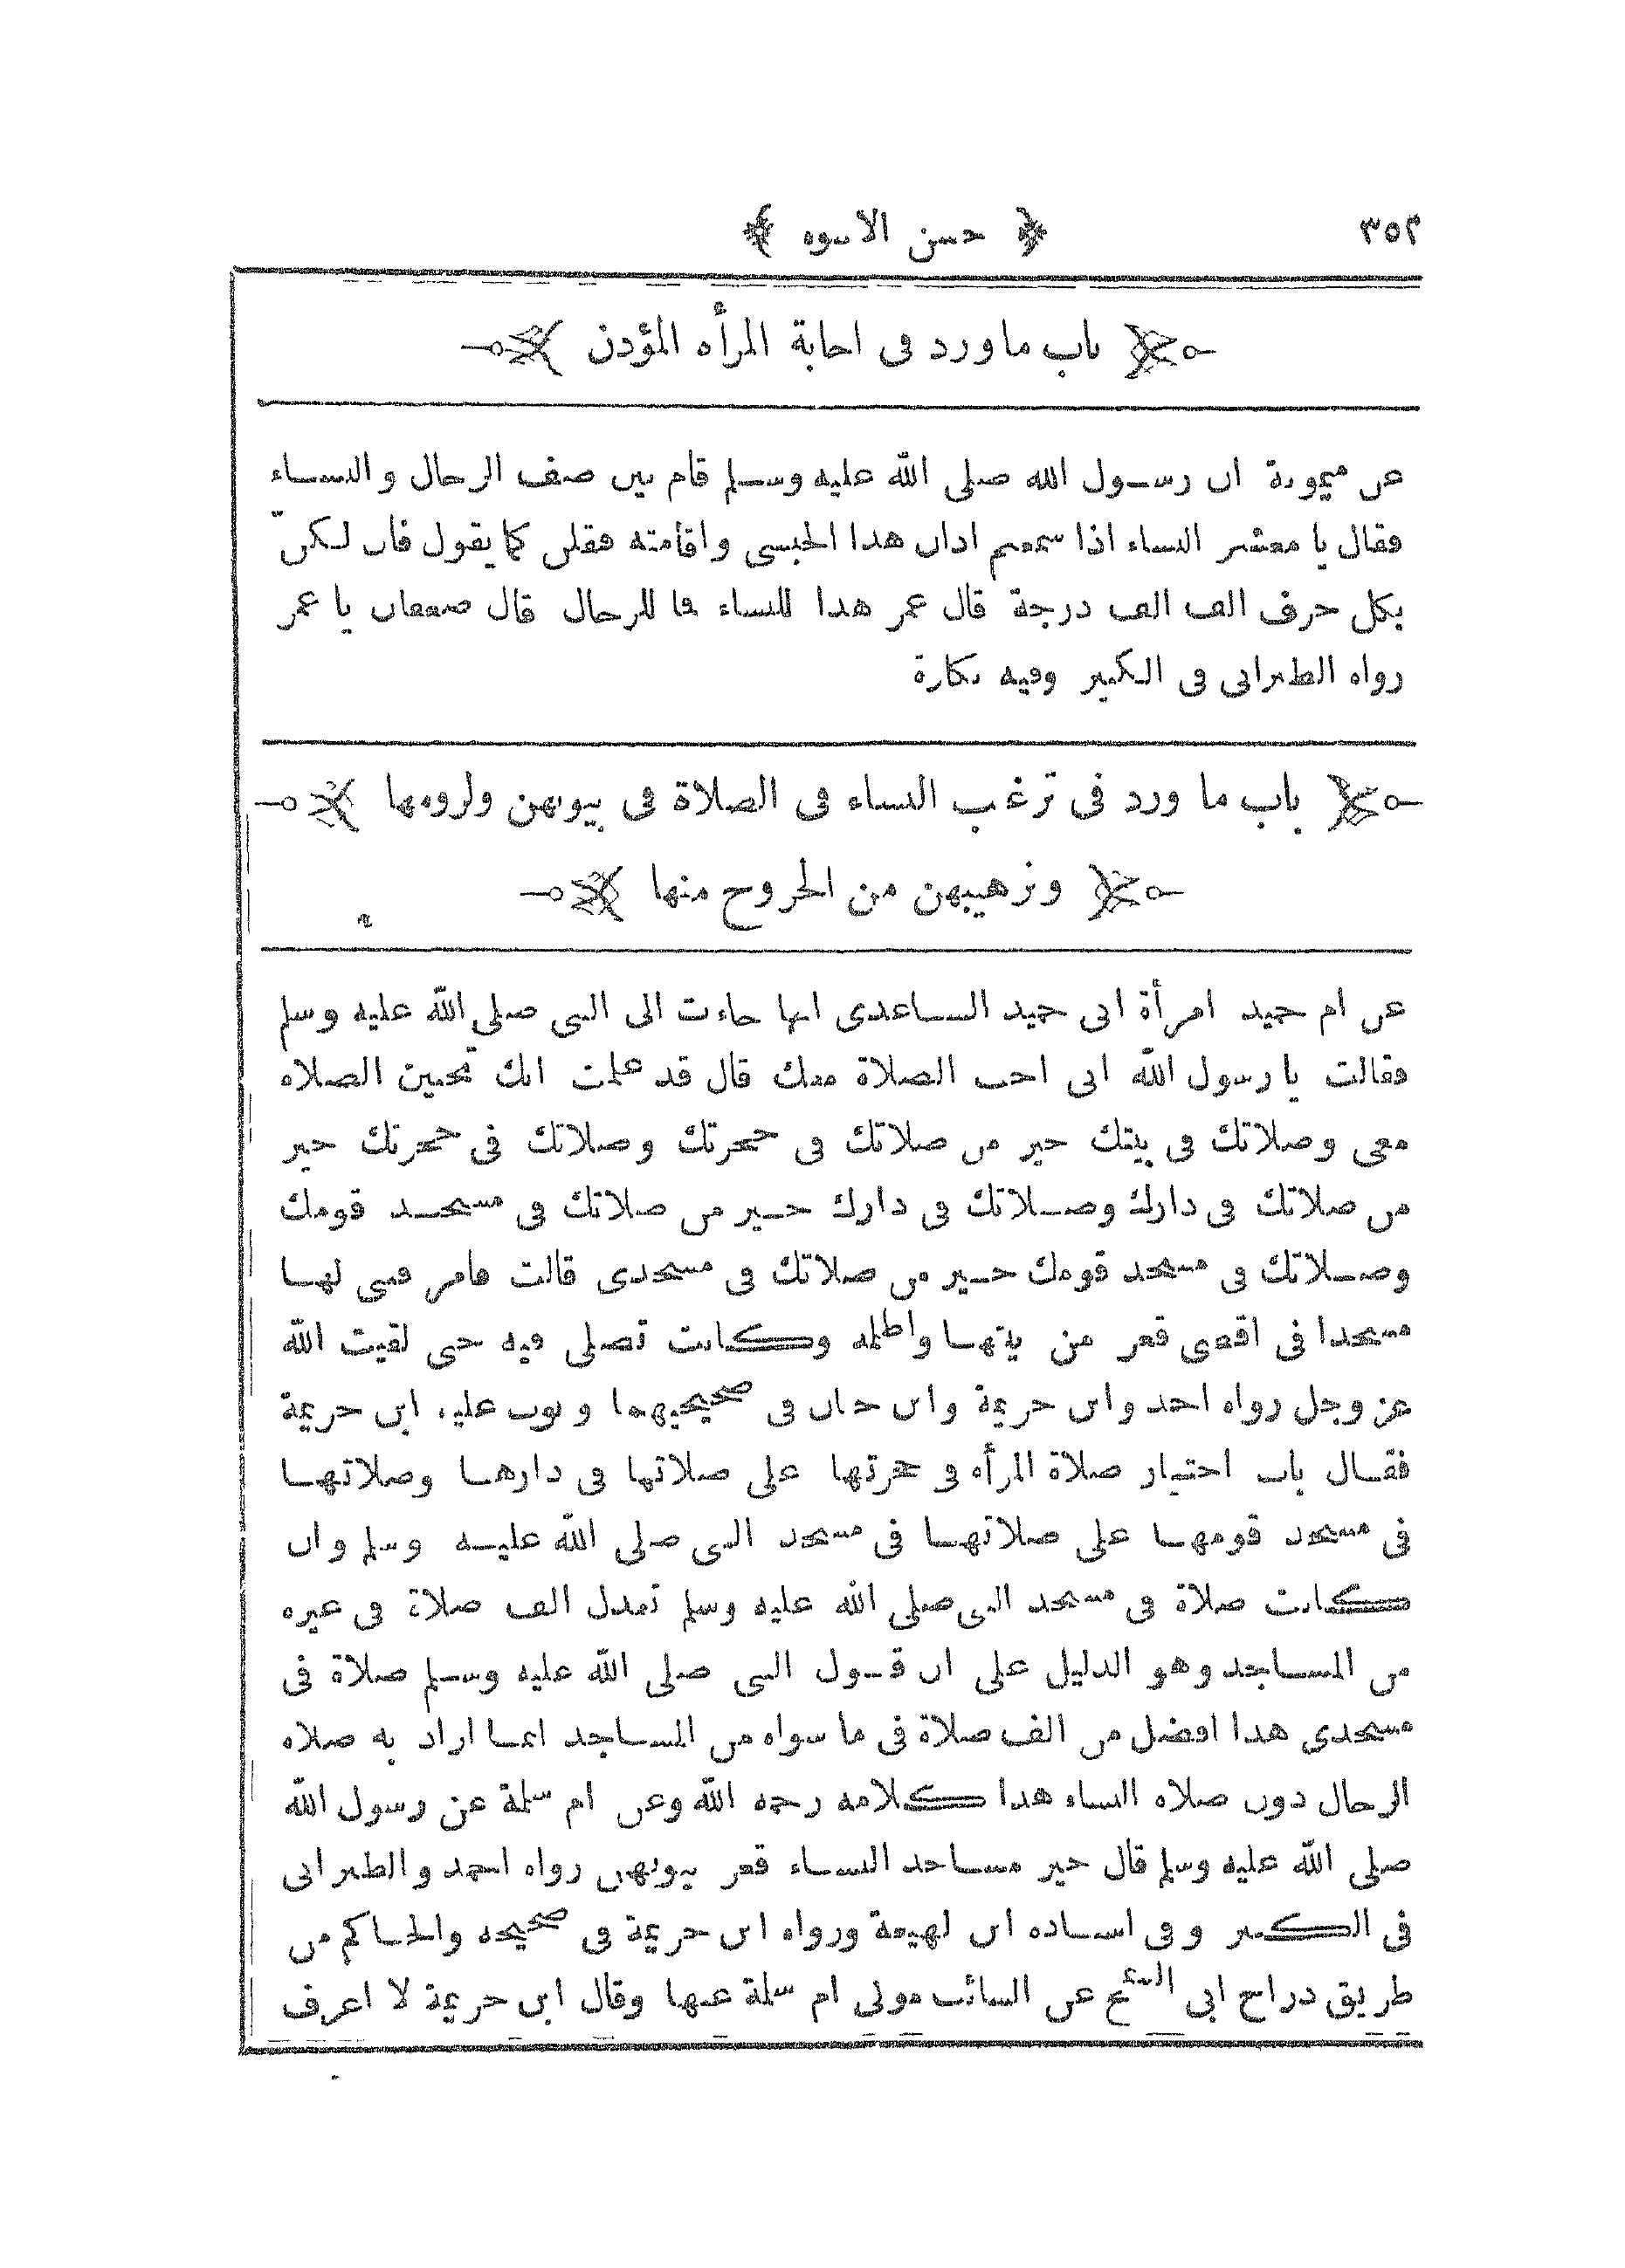 ٣٥٢ ﴿ حسن الاسوه ﴾
باب ما ورد فى اجابة المرأه المؤذن
عن ميمونة ان رسول الله صلى الله عليه وسلم قام بين صف الرجال والنساء
فقال يا معشر النساء اذا سمعتم اذان هذا الحبشى واقامته فقلن كما يقول فان لكنّ
بكل حرف الف الف درجة قال عمر هذا للنساء فما للرجال قال ضعفان يا عمر
رواه الطبرانى فى الكبير وفيه نكارة
باب ما ورد فى ترغيب النساء فى الصلاة فى بيوتهن ولزومها
وترهيبهن من الخروج منها
عن ام حميد امرأة ابى حميد الساعدى انها جاءت الى النبى صلى الله عليه وسلم
فقالت يا رسول الله انى احب الصلاة معك قال قد علمت انك تحبين الصلاه
معى وصلاتك فى بيتك خير من صلاتك فى حجرتك وصلاتك فى حجرتك خير
من صلاتك فى دارك وصلاتك فى دارك خير من صلاتك فى مسجد قومك
وصلاتك فى مسجد قومك خير من صلاتك فى مسجدى قالت فامر فبنى لها
مسجدا فى اقصى قعر من بيتها واظلمه وكانت تصلى فيه حتى لقيت الله
عز وجل رواه احمد وابن خزيمة وابن حبان فى صحيحيهما وبوب عليه ابن خزيمة
فقال باب اختيار صلاة المرأه فى حجرتها على صلاتها فى دارها وصلاتها
فى مسجد قومها على صلاتها فى مسجد النبى صلى الله عليه وسلم وان
كانت صلاة فى مسجد النبى صلى الله عليه وسلم تعدل الف صلاة فى غيره
من المساجد وهو الدليل على ان قول النبى صلى الله عليه وسلم صلاة فى
مسجدى هذا افضل من الف صلاة فى ما سواه من المساجد انما اراد به صلاه
الرجال دون صلاه النساء هذا كلامه رحمه الله وعن ام سلمة عن رسول الله
صلى الله عليه وسلم قال خير مساجد النساء قعر بيوتهن رواه احمد والطبرانى
فى الكبير وفى اسناده ابن لهيعة ورواه ابن خزيمة فى صحيحه والحاكم من
طريق دراج ابى السمح عن السائب مولى ام سلمة عنها وقال ابن خزيمة لا اعرف